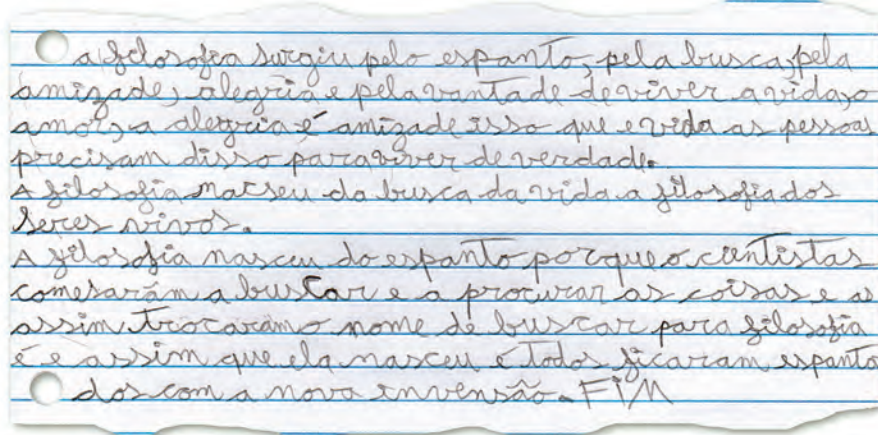 a filosofia surgiu pelo espanto, pela busca, pela
amizade, alegria e pela vantade de viver a vida, o
amor, a alegria é amizade isso que e vida as pessoas
precisam disso para viver de verdade.
A filosofia natseu da busca da vida a filosofia dos
seres vivos.
A filosofia nasceu do espanto porque o cientistas
comesarãm a buscar e a procurar as coisas e as
assim trocaramo nome de buscar para filosofia
é e assim que ela nasceu e todos ficaram espanto
dos com a nova invensão. FIM